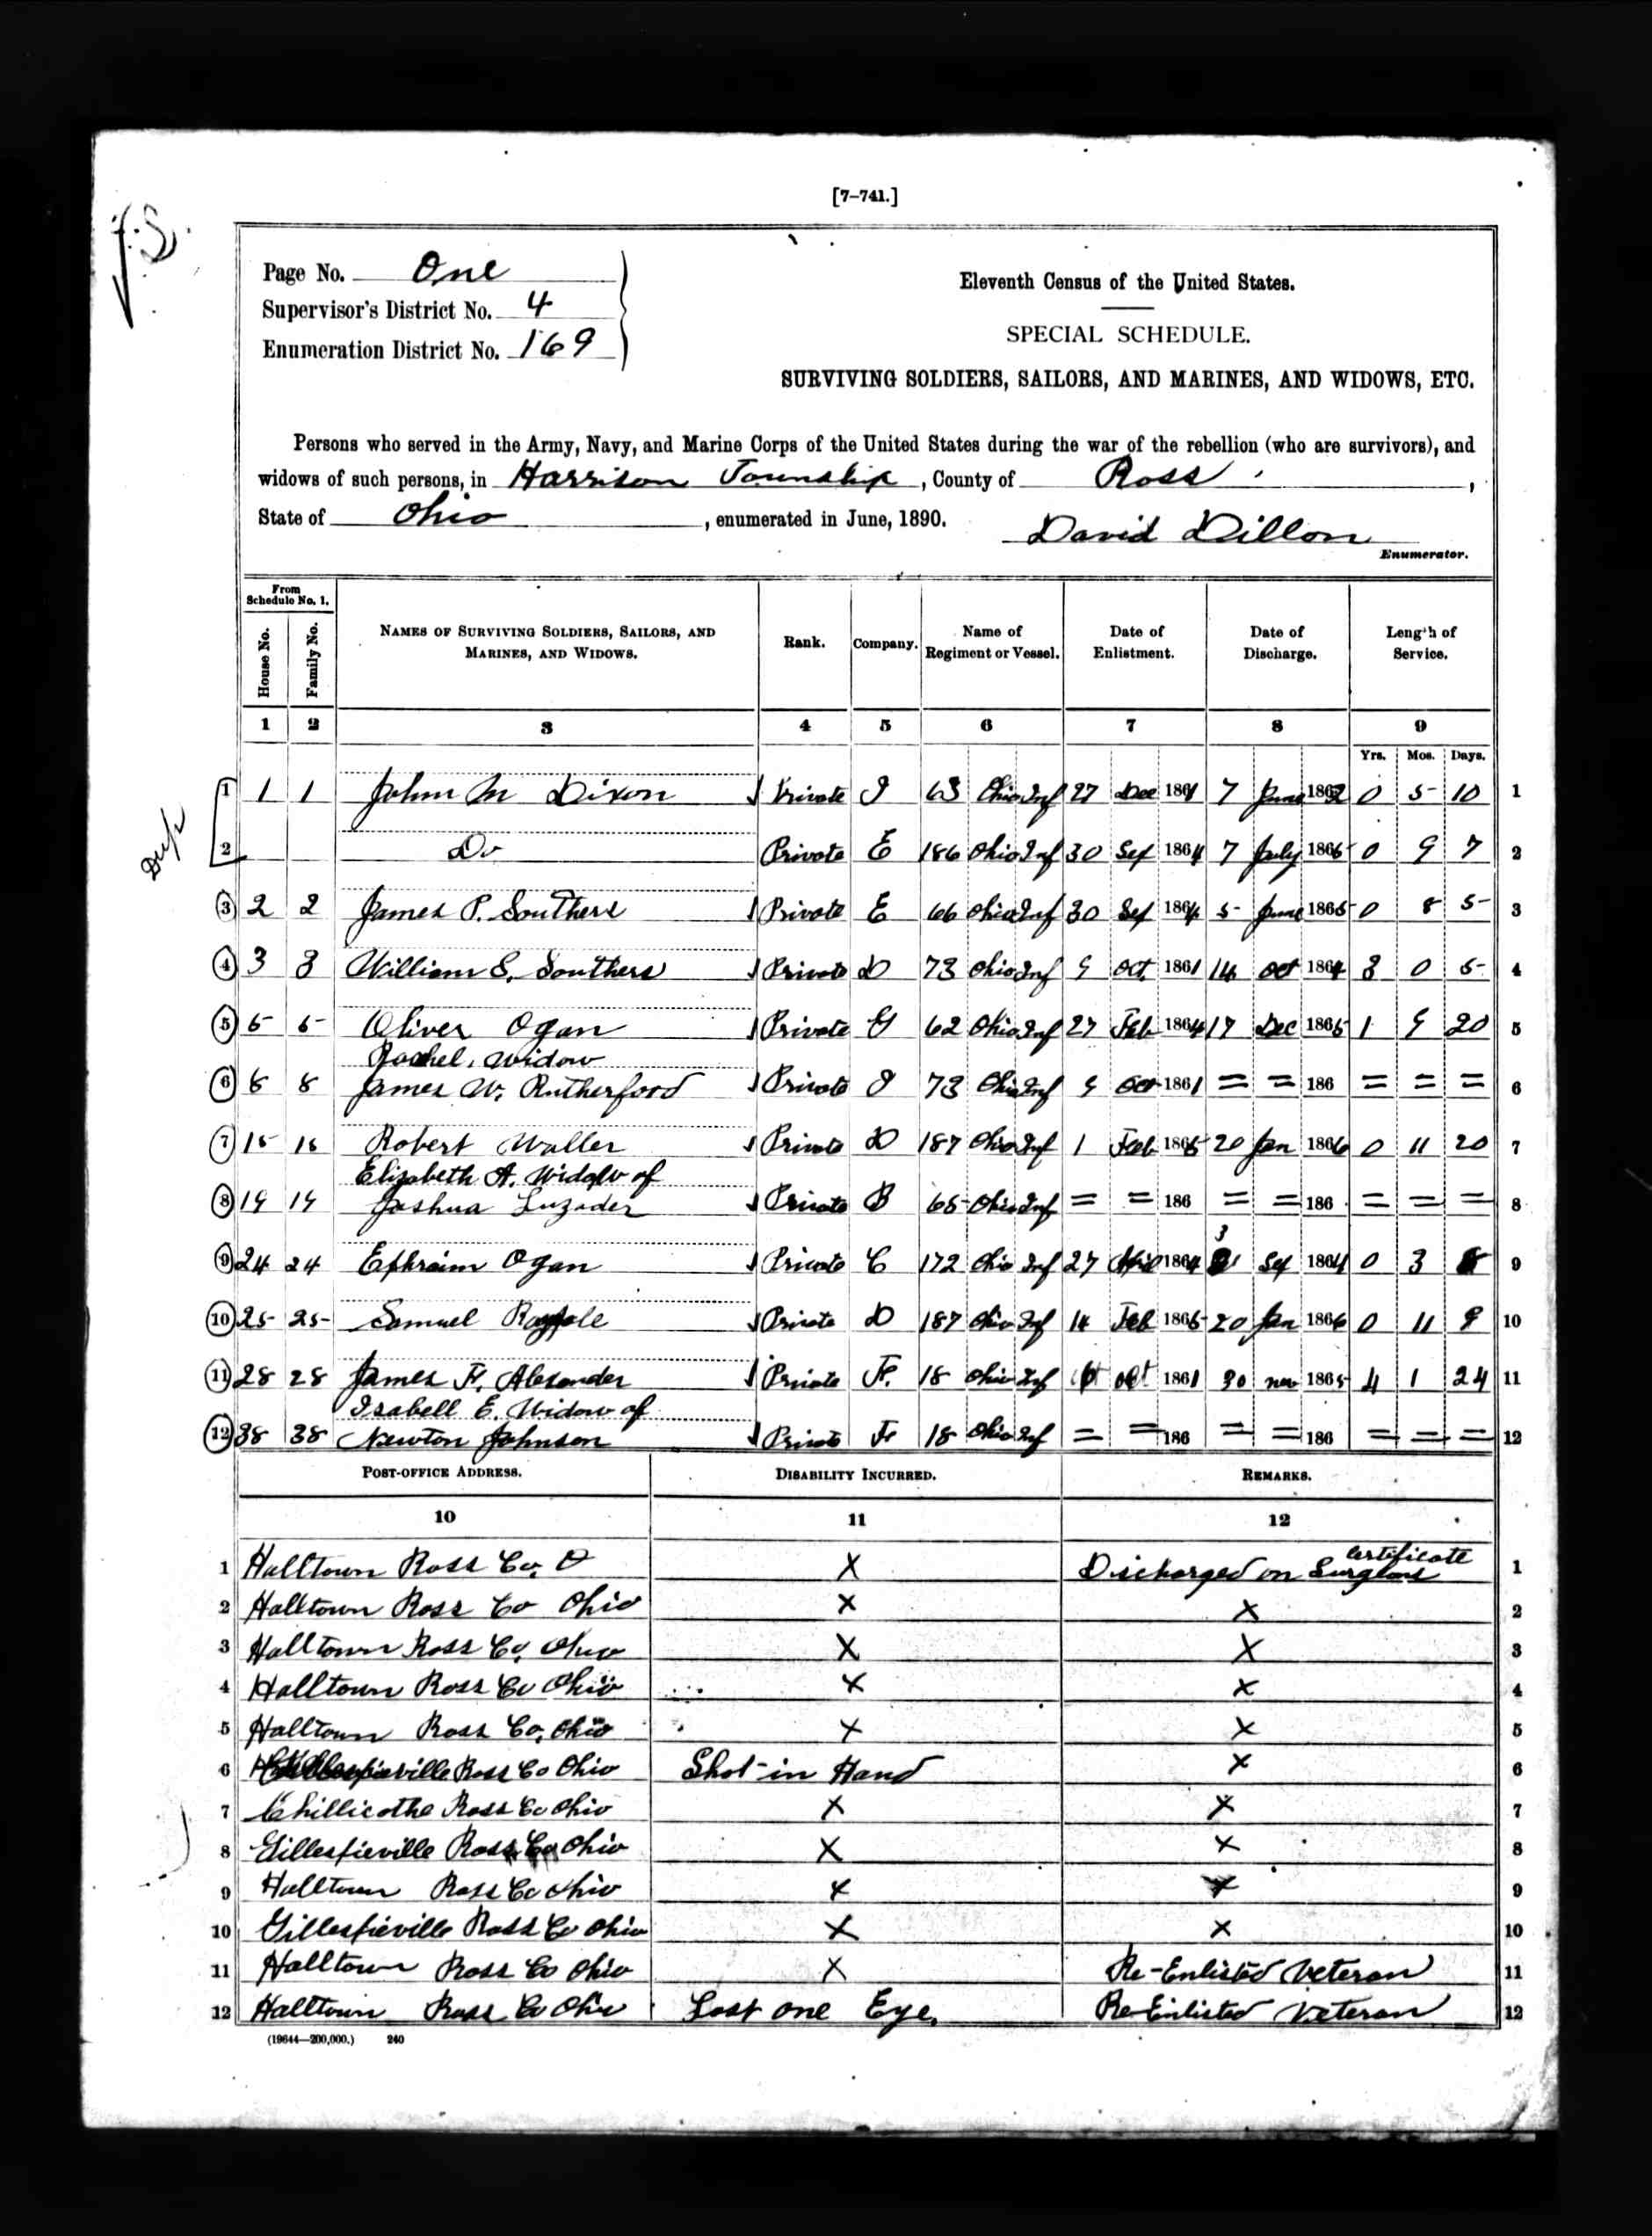 [7–741.]
J.S.
Page No. One
Supervisor's District No. 4
Enumeration District No. 169
Eleventh Census of the United States.
SPECIAL SCHEDULE.
SURVIVING SOLDIERS, SAILORS, AND MARINES, AND WIDOWS, ETC.
Persons who served in the Army, Navy, and Marine Corps of the United States during the war of the rebellion (who are survivors), and
widows of such persons, in Harrison Township, County of Ross,
State of Ohio, enumerated in June, 1890. David Dillon
Enumerator.
From Schedule No. 1. House No. Family No. NAMES OF SURVIVING SOLDIERS, SAILORS, AND MARINES, AND WIDOWS. Rank. Company. Name of Regiment or Vessel. Date of Enlistment. Date of Discharge. Length of Service.
1 2 3 4 5 6 7 8 9
Yrs. Mos. Days.
1 1 1 John M Dixon Private I 63 Ohio Inf 27 Dec 1861 7 June 1862 0 5 10 1
Dup
2 Do Private E 186 Ohio Inf 30 Sep 1864 7 July 1865 0 9 7 2
3 2 2 James P. Southers Private E 66 Ohio Inf 30 Sep 1864 5 June 1865 0 8 5 3
4 3 3 William S. Southers Private D 73 Ohio Inf 9 Oct 1861 14 Oct 1864 3 0 5 4
5 5 5 Oliver Ogan Private G 62 Ohio Inf 27 Feb 1864 17 Dec 1865 1 9 20 5
Rachel, Widow
6 8 8 James W. Rutherford Private I 73 Ohio Inf 9 Oct 1861 = = 186 = = = 6
7 15 15 Robert Waller Private D 187 Ohio Inf 1 Feb 1865 20 Jan 1866 0 11 20 7
Elizabeth A. Widow of
8 19 19 Joshua Luzader Private B 65 Ohio Inf = = 186 = = 186 = = = 8
9 24 24 Ephraim Ogan Private C 172 Ohio Inf 27 1864 3 Sep 1864 0 3 8 9
10 25 25 Samuel Private D 187 Ohio Inf 14 Feb 1865 20 Jan 1866 0 11 9 10
11 28 28 James F. Alexander Private F. 18 Ohio Inf Oct 1861 30 Nov 1865 4 1 24 11
Isabell E. Widow of
12 38 38 Newton Johnson Private F 18 Ohio Inf = = 186 = = 186 = = = 12
POST-OFFICE ADDRESS. DISABILITY INCURRED. REMARKS.
10 11 12
1 Halltown Ross Co, O X Discharged on Surgeons Certificate 1
2 Halltown Ross Co Ohio X X 2
3 Halltown Ross Co, Ohio X X 3
4 Halltown Ross Co Ohio X X 4
5 Halltown Ross Co, Ohio X X 5
6 Ross Co Ohio Shot in Hand X 6
7 Chillicothe Ross Co Ohio X X 7
8 Gillespieville Ross Co Ohio X X 8
9 Halltown Ross Co Ohio X X 9
10 Gillespieville Ross Co Ohio X X 10
11 Halltown Ross Co Ohio X Re-Enlisted Veteran 11
12 Halltown Ross Co Ohio Lost one Eye. Re-Enlisted Veteran 12
(19644—200,000.) 240